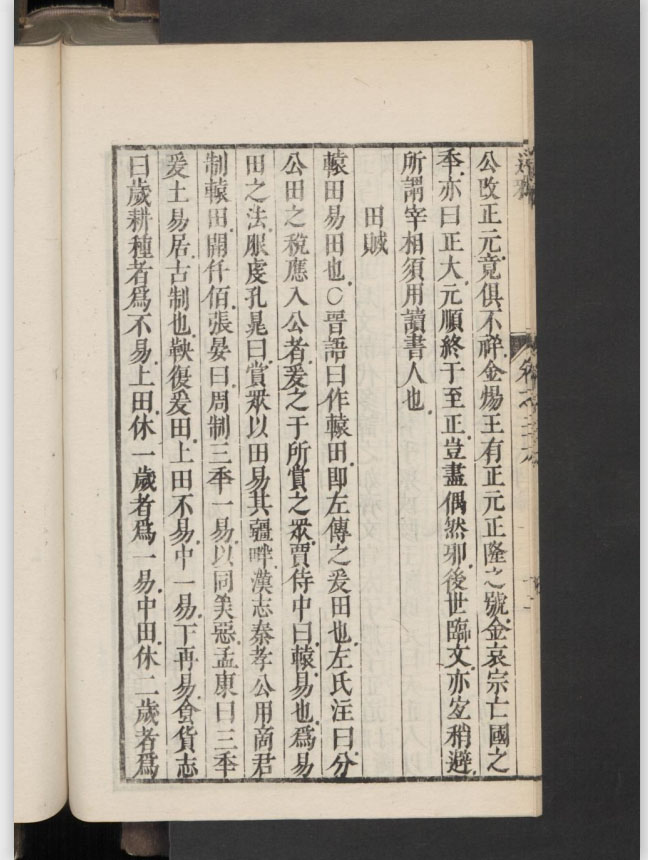 通雅
卷之二十六
公改正元竟俱不祥金煬王有正元正隆之號金哀宗亡國之
秊亦曰正大元順終于至正豈盡偶然邪後世臨文亦宐稍避
所謂宰相須用讀書人也
田賦
轅田易田也○晉語曰作轅田即左傳之爰田也左氏注曰分
公田之稅應入公者爰之于所賞之眾賈侍中曰轅易也爲易
田之法服虔孔晁曰賞眾以田易其疆畔漢志秦孝公用商君
制轅田開仟佰張晏曰周制三秊一易以同美惡孟康曰三秊
爰土易居古制也鞅復爰田上田不易中一易下再易食貨志
曰歲耕種者爲不易上田休一歲者爲一易中田休二歲者爲